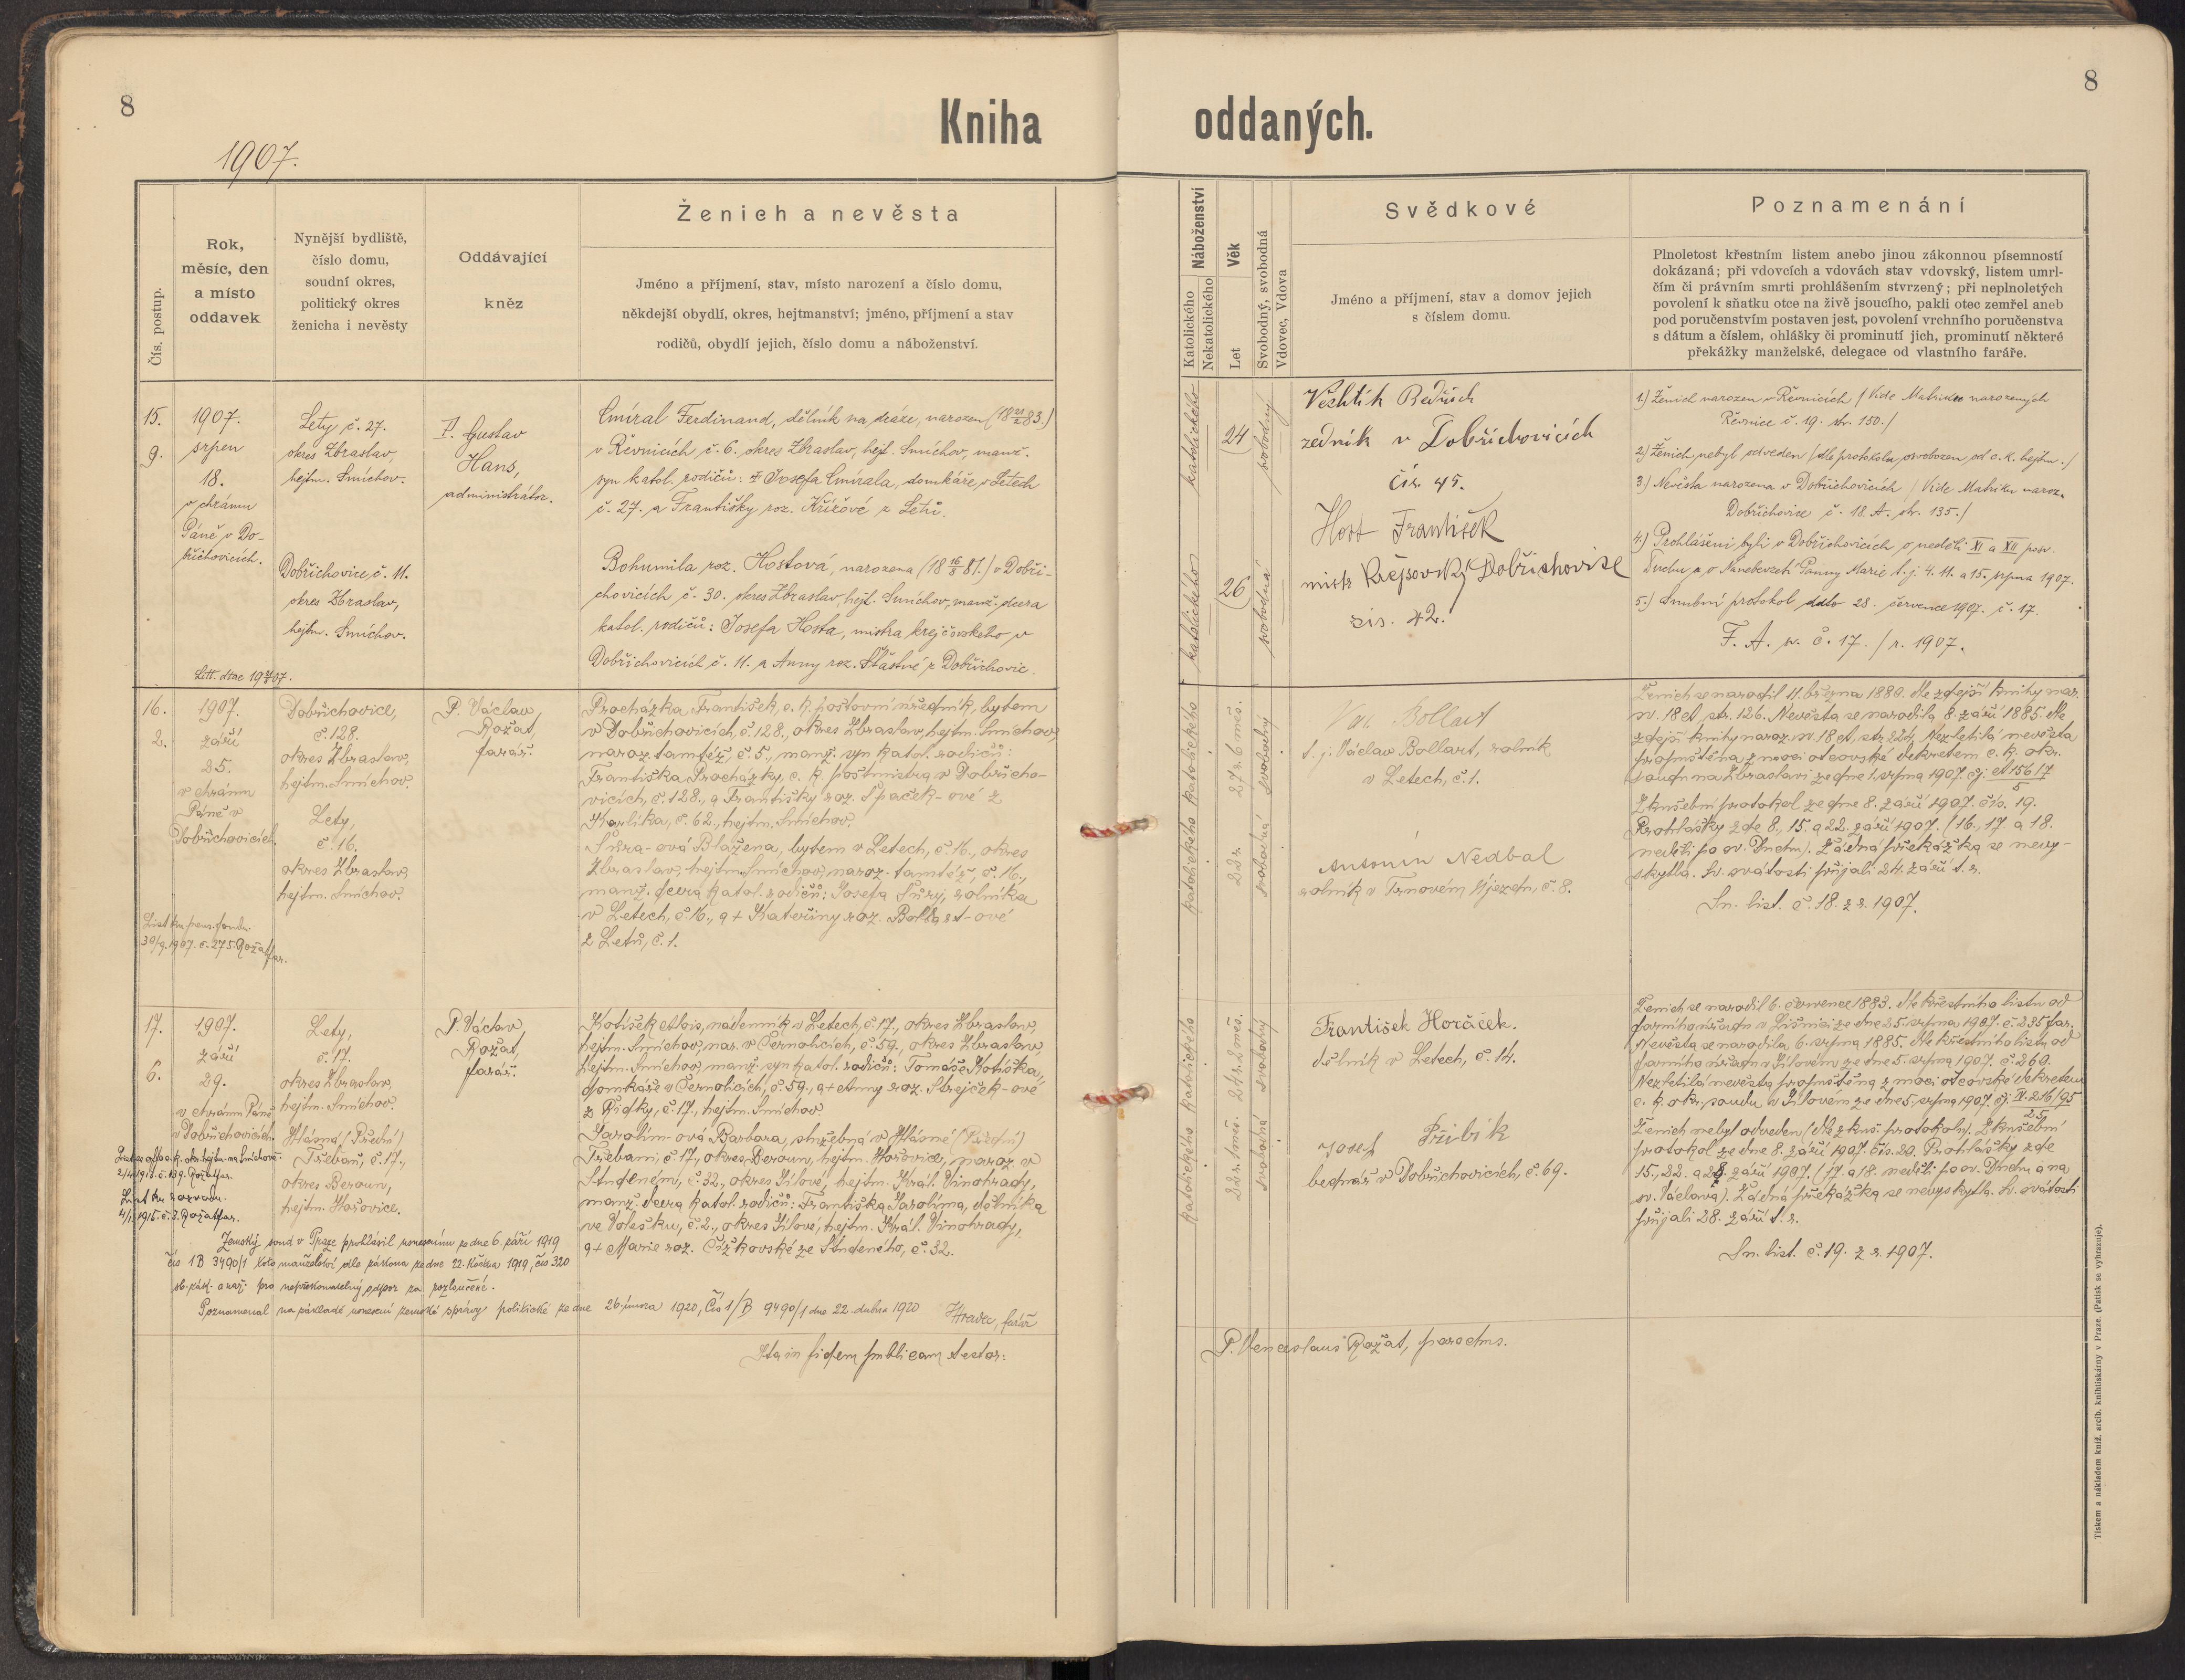 8
Kniha
1907.
Čís. postup.
Rok,
měsíc, den
a místo
oddavek
Nynější bydliště,
číslo domu,
soudní okres,
politický okres
ženicha i nevěsty
Oddávající
kněz
Ženich a nevěsta
Jméno a příjmení, stav, místo narození a číslo domu,
někdejší obydlí, okres, hejtmanství; jméno, příjmení a stav
rodičů, obydlí jejich, číslo domu a náboženství.
15.
9.
1907.
srpen
18.
v chrámu
Páně v Do-
břichovicích.
Lety č. 27.
okres Zbraslav,
hejtm. Smíchov.
Dobřichovice, č. 11.
okres Zbraslav,
hejtm. Smíchov.
P. Gustav
Hans,
administrátor.
Cmíral Ferdinand, dělník na dráze, narozen
v Řevnicích č. 6. okres Zbraslav, hejt. Smíchov, manž.
syn katol. rodičů: † Josefa Cmírala, domkáře v Letech
č. 27. a Františky roz. Křížové z Letů.
Bohumila roz. Hostová, narozena v Dobři-
chovicích č. 30. okres Zbraslav, hejt. Smíchov, manž. dcera
katol. rodičů: Josefa Hosta, mistra krejčovského v
Dobřichovicích č. 11. a Anny roz. Šťastné z Dobřichovic.
16.
2.
1907.
září
25.
v chrámu
Páně v
Dobřichovicích.
List ku pens. fondu
30/9.1907. č. 275. Rožát far.
Dobřichovice,
č. 128.
okres Zbraslav,
hejtm. Smíchov.
Lety,
č. 16.
okres Zbraslav,
hejtm. Smíchov.
P. Václav
Rožát,
farář.
Procházka František, c. k. poštovní úředník, bytem
v Dobřichovicích, č. 128., okres Zbraslav, hejtm. Smíchov,
naroz. tamtéž, č. 5., manž. syn katol. rodičů:
Františka Procházky, c. k. poštmistra v Dobřicho-
vicích, č. 128., a Františky roz. Špaček-ové z
Karlíka, č. 62., hejtm. Smíchov.
Blažena, bytem v Letech, č. 16., okres
Zbraslav, hejtm. Smíchov, naroz. tamtéž, č. 16.,
manž. dcera katol. rodičů: Josefa rolníka
v Letech, č. 16., a † Kateřiny roz. Bollart-ové
z Letů, č. 1.
17.
6.
1907.
září
29.
v chrámu Páně
v Dobřichovicích.
List ku rozvodu.
Lety,
č. 17.
okres Zbraslav,
hejtm. Smíchov.
Hlásná (Přední)
Třebaň, č. 17.,
okres Beroun,
hejtm. Hořovice.
P. Václav
Rožát,
farář.
Kotíšek Alois, nádenník v Letech, č. 17., okres Zbraslav,
hejtm. Smíchov, nar. v Černolicích, č. 59., okres Zbraslav,
hejtm. Smíchov, manž. syn katol. rodičů: Tomáše Kotíška,
domkáře v Černolicích, č. 59., a † Anny roz. Strejček-ové
z Řidky, č. 17., hejtm. Smíchov.
Jarolím-ová Barbara, služebná v Hlásné (Přední)
Třebani, č. 17., okres Beroun, hejtm. Hořovice, naroz. v
Studeném, č. 32., okres Jílové, hejtm. Král. Vinohrady,
manž. dcera katol. rodičů: Františka Jarolíma, dělníka
ve Volešku, č. 2., okres Jílové, hejtm. Král. Vinohrady,
a † Marie roz. Čížkovské ze Studeného, č. 32.
Zemský soud v Praze prohlásil usnesením ze dne 6. září 1919
čís 1B 3490/1 toto manželství dle zákona ze dne 22. května 1919, čís 320
sb. zák. a nař. pro nepřekonatelný odpor za rozloučené.
Poznamenal na základě usnesení zemské správy politické ze dne 26. února 1920, Čís 1/B 9490/1 dne 22. dubna 1920
Hradec, farář
Ita in fidem publicam testor:
8
oddaných.
Náboženství
Katolického
Nekatolického
Věk
Let
Svobodný, svobodná
Vdovec, Vdova
Svědkové
Jméno a příjmení, stav a domov jejich
s číslem domu.
Poznamenání
Plnoletost křestním listem anebo jinou zákonnou písemností
dokázaná; při vdovcích a vdovách stav vdovský, listem umrl-
čím či právním smrti prohlášením stvrzený; při neplnoletých
povolení k sňatku otce na živě jsoucího, pakli otec zemřel aneb
pod poručenstvím postaven jest, povolení vrchního poručenstva
s dátum a číslem, ohlášky či prominutí jich, prominutí některé
překážky manželské, delegace od vlastního faráře.
katolického
24
svobodný
katolického
26
svobodná
Bedřich
zedník v Dobřichovicích
čís. 45.
Host František
mistr Krejčovský Dobřichovice
čis. 42.
1.) Ženich narozen v Řevnicích / Vide Matriku narozených
Řevnice č. 19. str. 150./
2.) Ženich nebyl odveden / dle protokolu osvobozen od c. k. hejtm./
3.) Nevěsta narozena v Dobřichovicích / Vide Matriku naroz.
Dobřichovice č. 18. A. str. 135./
4.) Prohlášeni byli v Dobřichovicích o neděli XI a XII posv.
Duchu a o Nanebevzetí Panny Marie t. j. 4. 11. a 15. srpna 1907.
5.) Snubní protokol ddto 28. července 1907. č. 17.
F. A. sv. č. 17. / r. 1907.
katolického
27 r. 6 měs.
svobodný
katolického
22 r.
svobodná
Vác. Bollart
t. j. Václav Bollart, rolník
v Letech, č. 1.
Antonín Nedbal
rolník v Trnovém Újezdě, č. 8.
Ženich se narodil 11. března 1880. dle zdejší knihy nar.
sv. 18 A str. 126. Nevěsta se narodila 8. září 1885. dle
zdejší knihy naroz. sv. 18 A, str. 224. Nezletilá nevěsta
propuštěna z moci otcovské dekretem c. k. okr.
soudu na Zbraslavi ze dne 1. srpna 1907. čj. A 156/7
5
Zkušební protokol ze dne 8. září 1907. čís. 19.
Prohlášky zde 8., 15. a 22. září 1907. (16., 17. a 18.
neděli po sv. Duchu). Žádná překážka se nevy-
skytla. Sv. svátosti přijali 24. září t. r.
Sn. list. č. 18. z r. 1907.
katolického
24 r. 2 měs.
svobodný
katolického
22 r. 1 měs.
svobodná
František Horáček.
dělník v Letech, č. 14.
Josef Přibík
bednář v Dobřichovicích, č. 69.
Ženich se narodil 6. července 1883. dle křestního listu od
farního úřadu v Líšnici ze dne 25. srpna 1907. č. 235 far.
Nevěsta se narodila 6. srpna 1885. dle křestního listu od
farního úřadu v Jílovém ze dne 5. srpna 1907. č. 269.
Nezletilá nevěsta propuštěna z moci otcovské dekretem
c. k. okr. soudu v Jílovém ze dne 5. srpna 1907. čj. P. 216/95
25
Ženich nebyl odveden (dle zkuš. protokolu). Zkušební
protokol ze dne 8. září 1907. čís. 20. Prohlášky zde
15., 22. a 28. září 1907. (17. a 18. neděli po sv. Duchu a na
sv. Václava). Žádná překážka se nevyskytla. Sv. svátosti
přijali 28. září t. r.
Sn. list. č. 19. z r. 1907.
P. Venceslaus Rožát, parochus.
Tiskem a nákladem kníž. arcib. knihtiskárny v Praze. (Patisk se vyhrazuje).